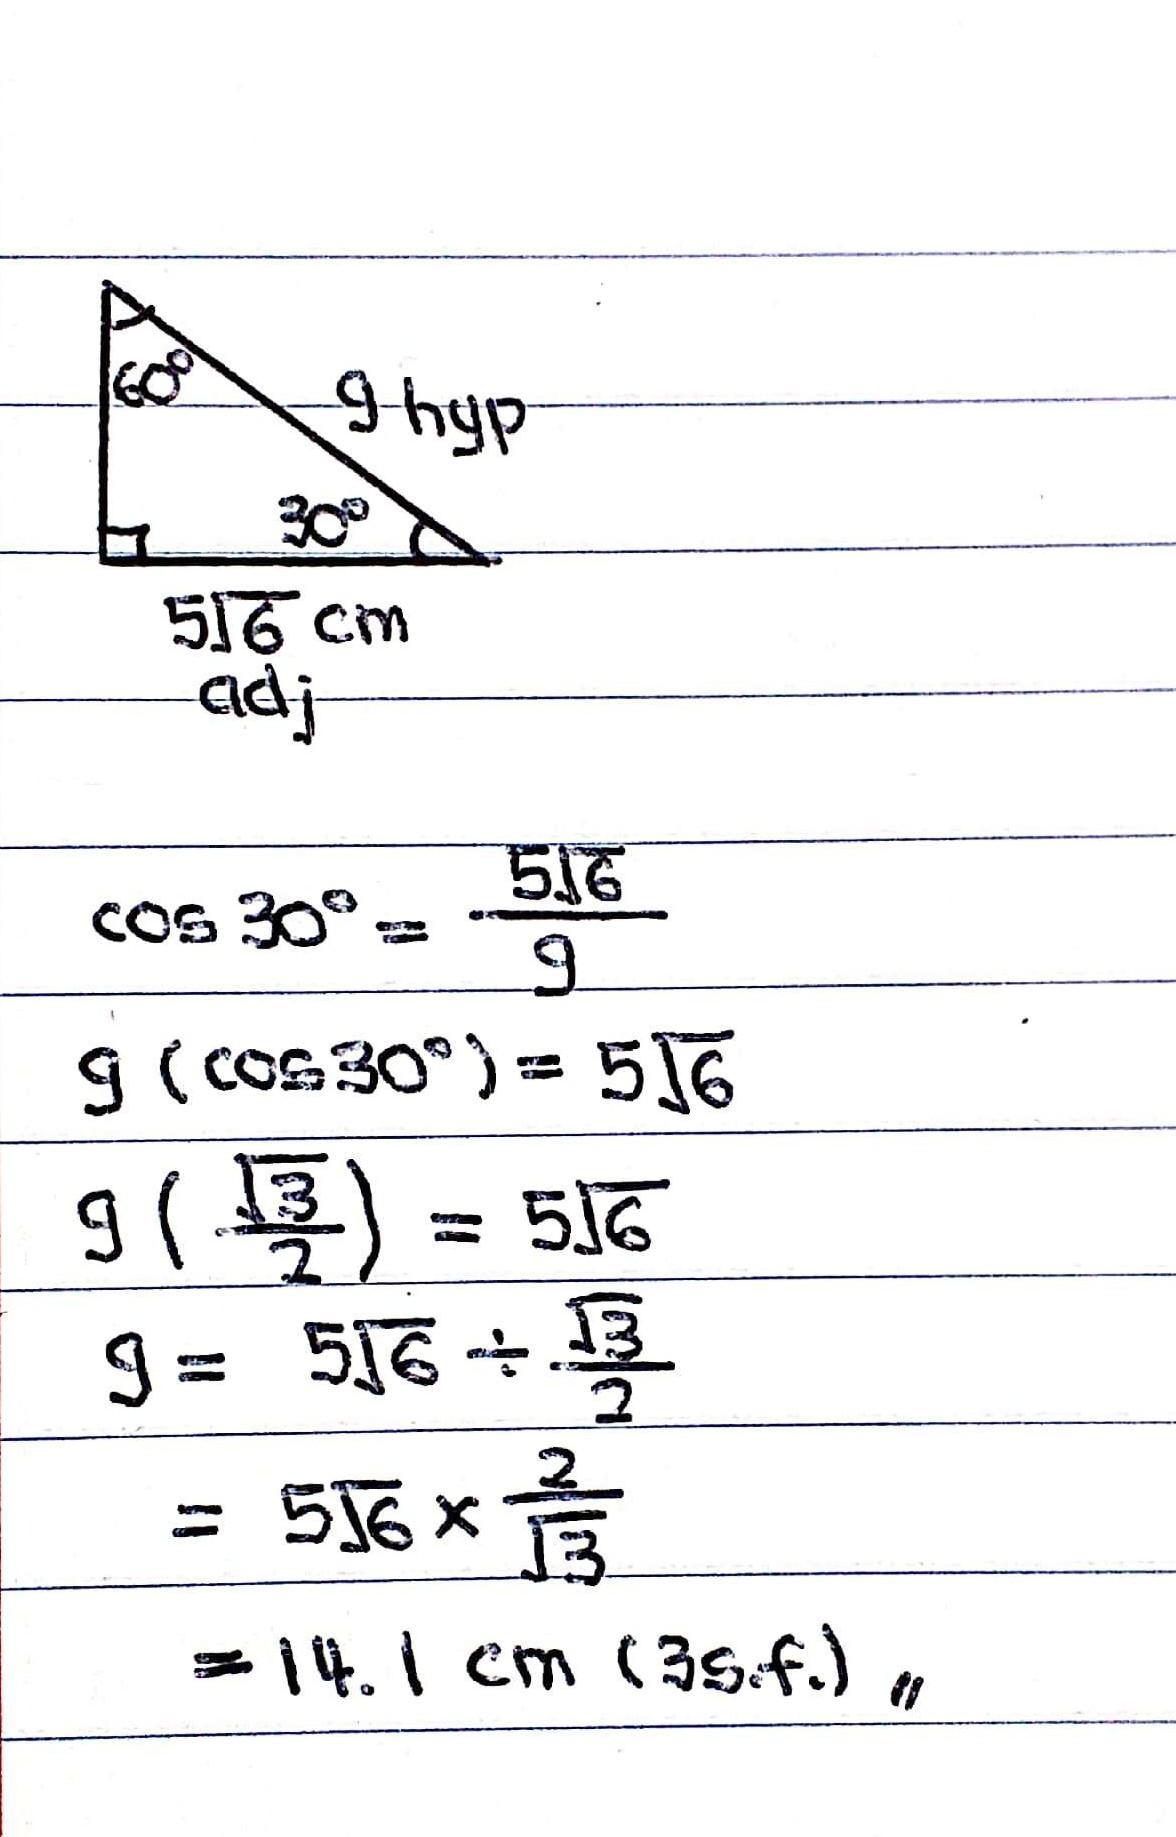 60°
g hyp
30°
5√6 cm
adj
cos 30° = 5√6/g
g (cos 30°) = 5√6
g (√3/2) = 5√6
g = 5√6 ÷ √3/2
= 5√6 × 2/√3
= 14.1 cm (3 s.f.) 〃